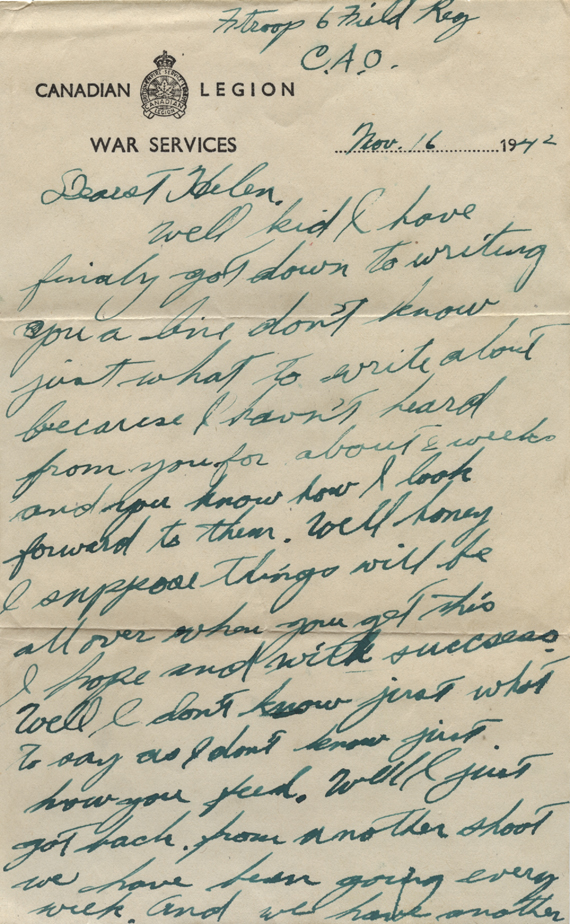 F troop 6 Field Reg
C.A.O.
CANADIAN LEGION
WAR SERVICES
Nov. 16 1942
Dearest Helen.
Well kid I have
finaly got down to writing
you a line don't know
just what to write about
because I havn't heard
from you for about 2 weeks
and you know how I look
forward to them. Well honey
I suppose things will be
all over when you get this
I hope and with success.
Well I don't know just what
to say as I don't know just
how you feed. Well I just
got back. from another shoot
we have been going every
week. and we have another